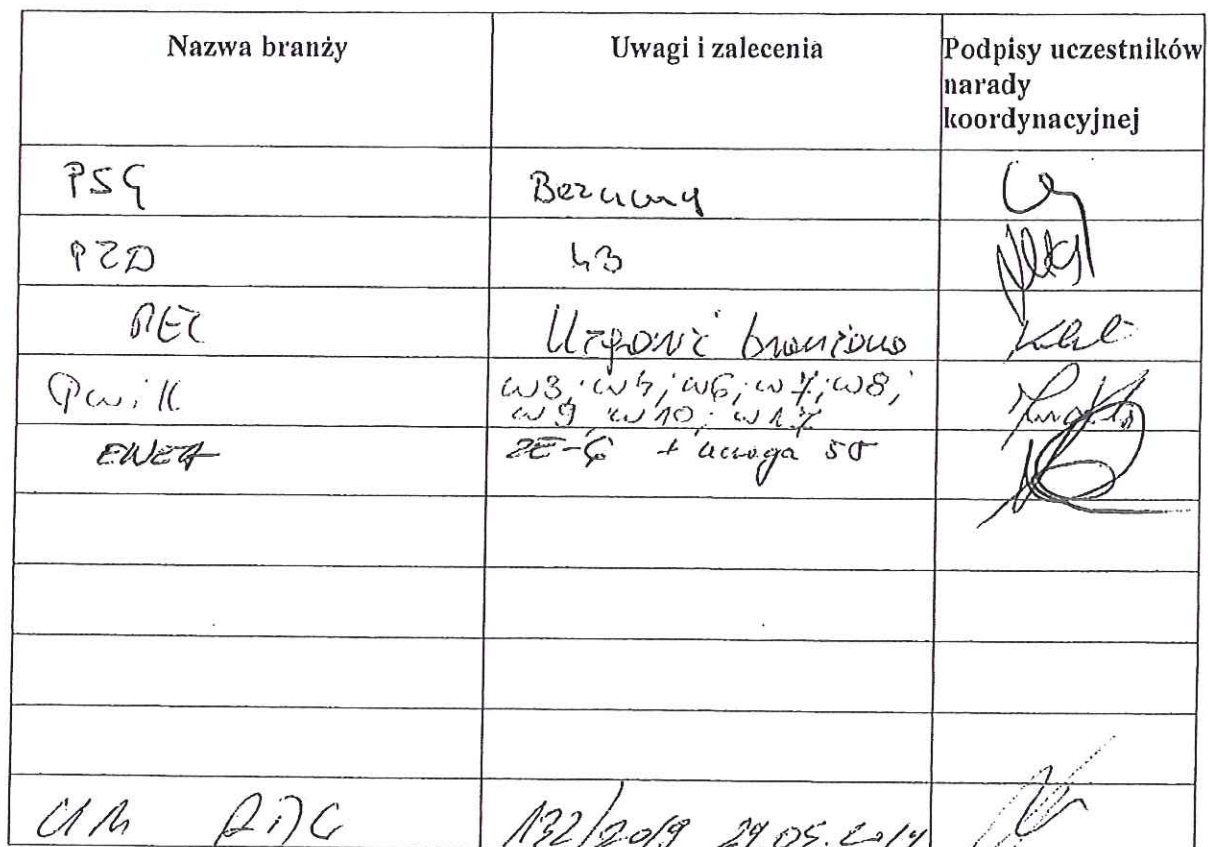 Nazwa branży
Uwagi i zalecenia
Podpisy uczestników
narady
koordynacyjnej
PSG
Bez uwag
PZD
43
PEC
Uzgodnić branżowo
PwiK
w3; w4; w6; w7; w8;
w9; w10; w17
ENEA
ZE-G + uwaga 50
UM
132/2019 29.05.2019